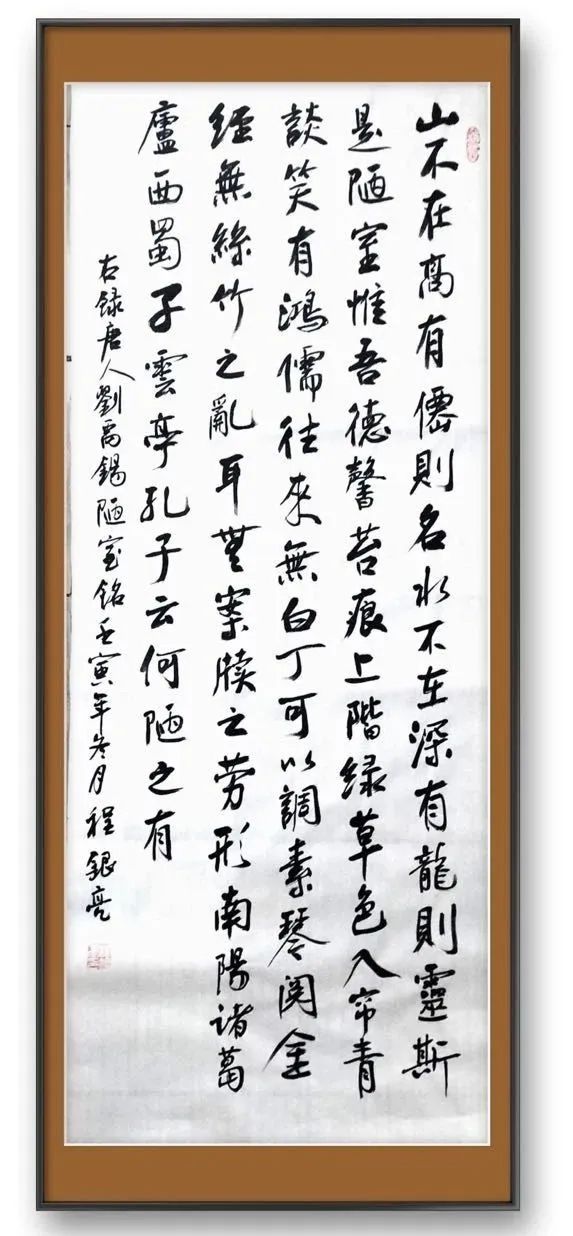 山不在高有僊則名水不在深有龍則靈斯
是陋室惟吾德馨苔痕上階緑草色入帘青
談笑有鴻儒往來無白丁可以調素琴閲金
經無絲竹之亂耳無案牘之劳形南陽諸葛
廬西蜀子雲亭孔子云何陋之有
右録唐人劉禹錫陋室銘壬寅年冬月程銀亮